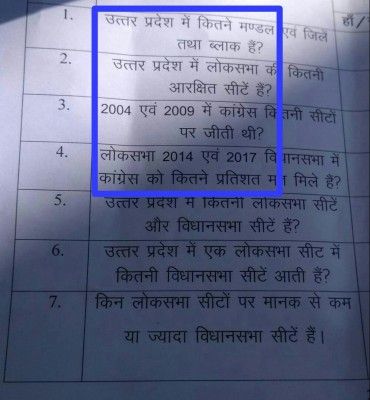 1. उत्तर प्रदेश में कितने मण्डल एवं जिले हाँ/
तथा ब्लाक हैं?
2. उत्तर प्रदेश में लोकसभा की कितनी
आरक्षित सीटें हैं?
3. 2004 एवं 2009 में कांग्रेस कितनी सीटों
पर जीती थी?
4. लोकसभा 2014 एवं 2017 विधानसभा में
कांग्रेस को कितने प्रतिशत मत मिले हैं?
5. उत्तर प्रदेश में कितनी लोकसभा सीटें
और विधानसभा सीटें हैं?
6. उत्तर प्रदेश में एक लोकसभा सीट में
कितनी विधानसभा सीटें आती हैं?
7. किन लोकसभा सीटों पर मानक से कम
या ज्यादा विधानसभा सीटें हैं।